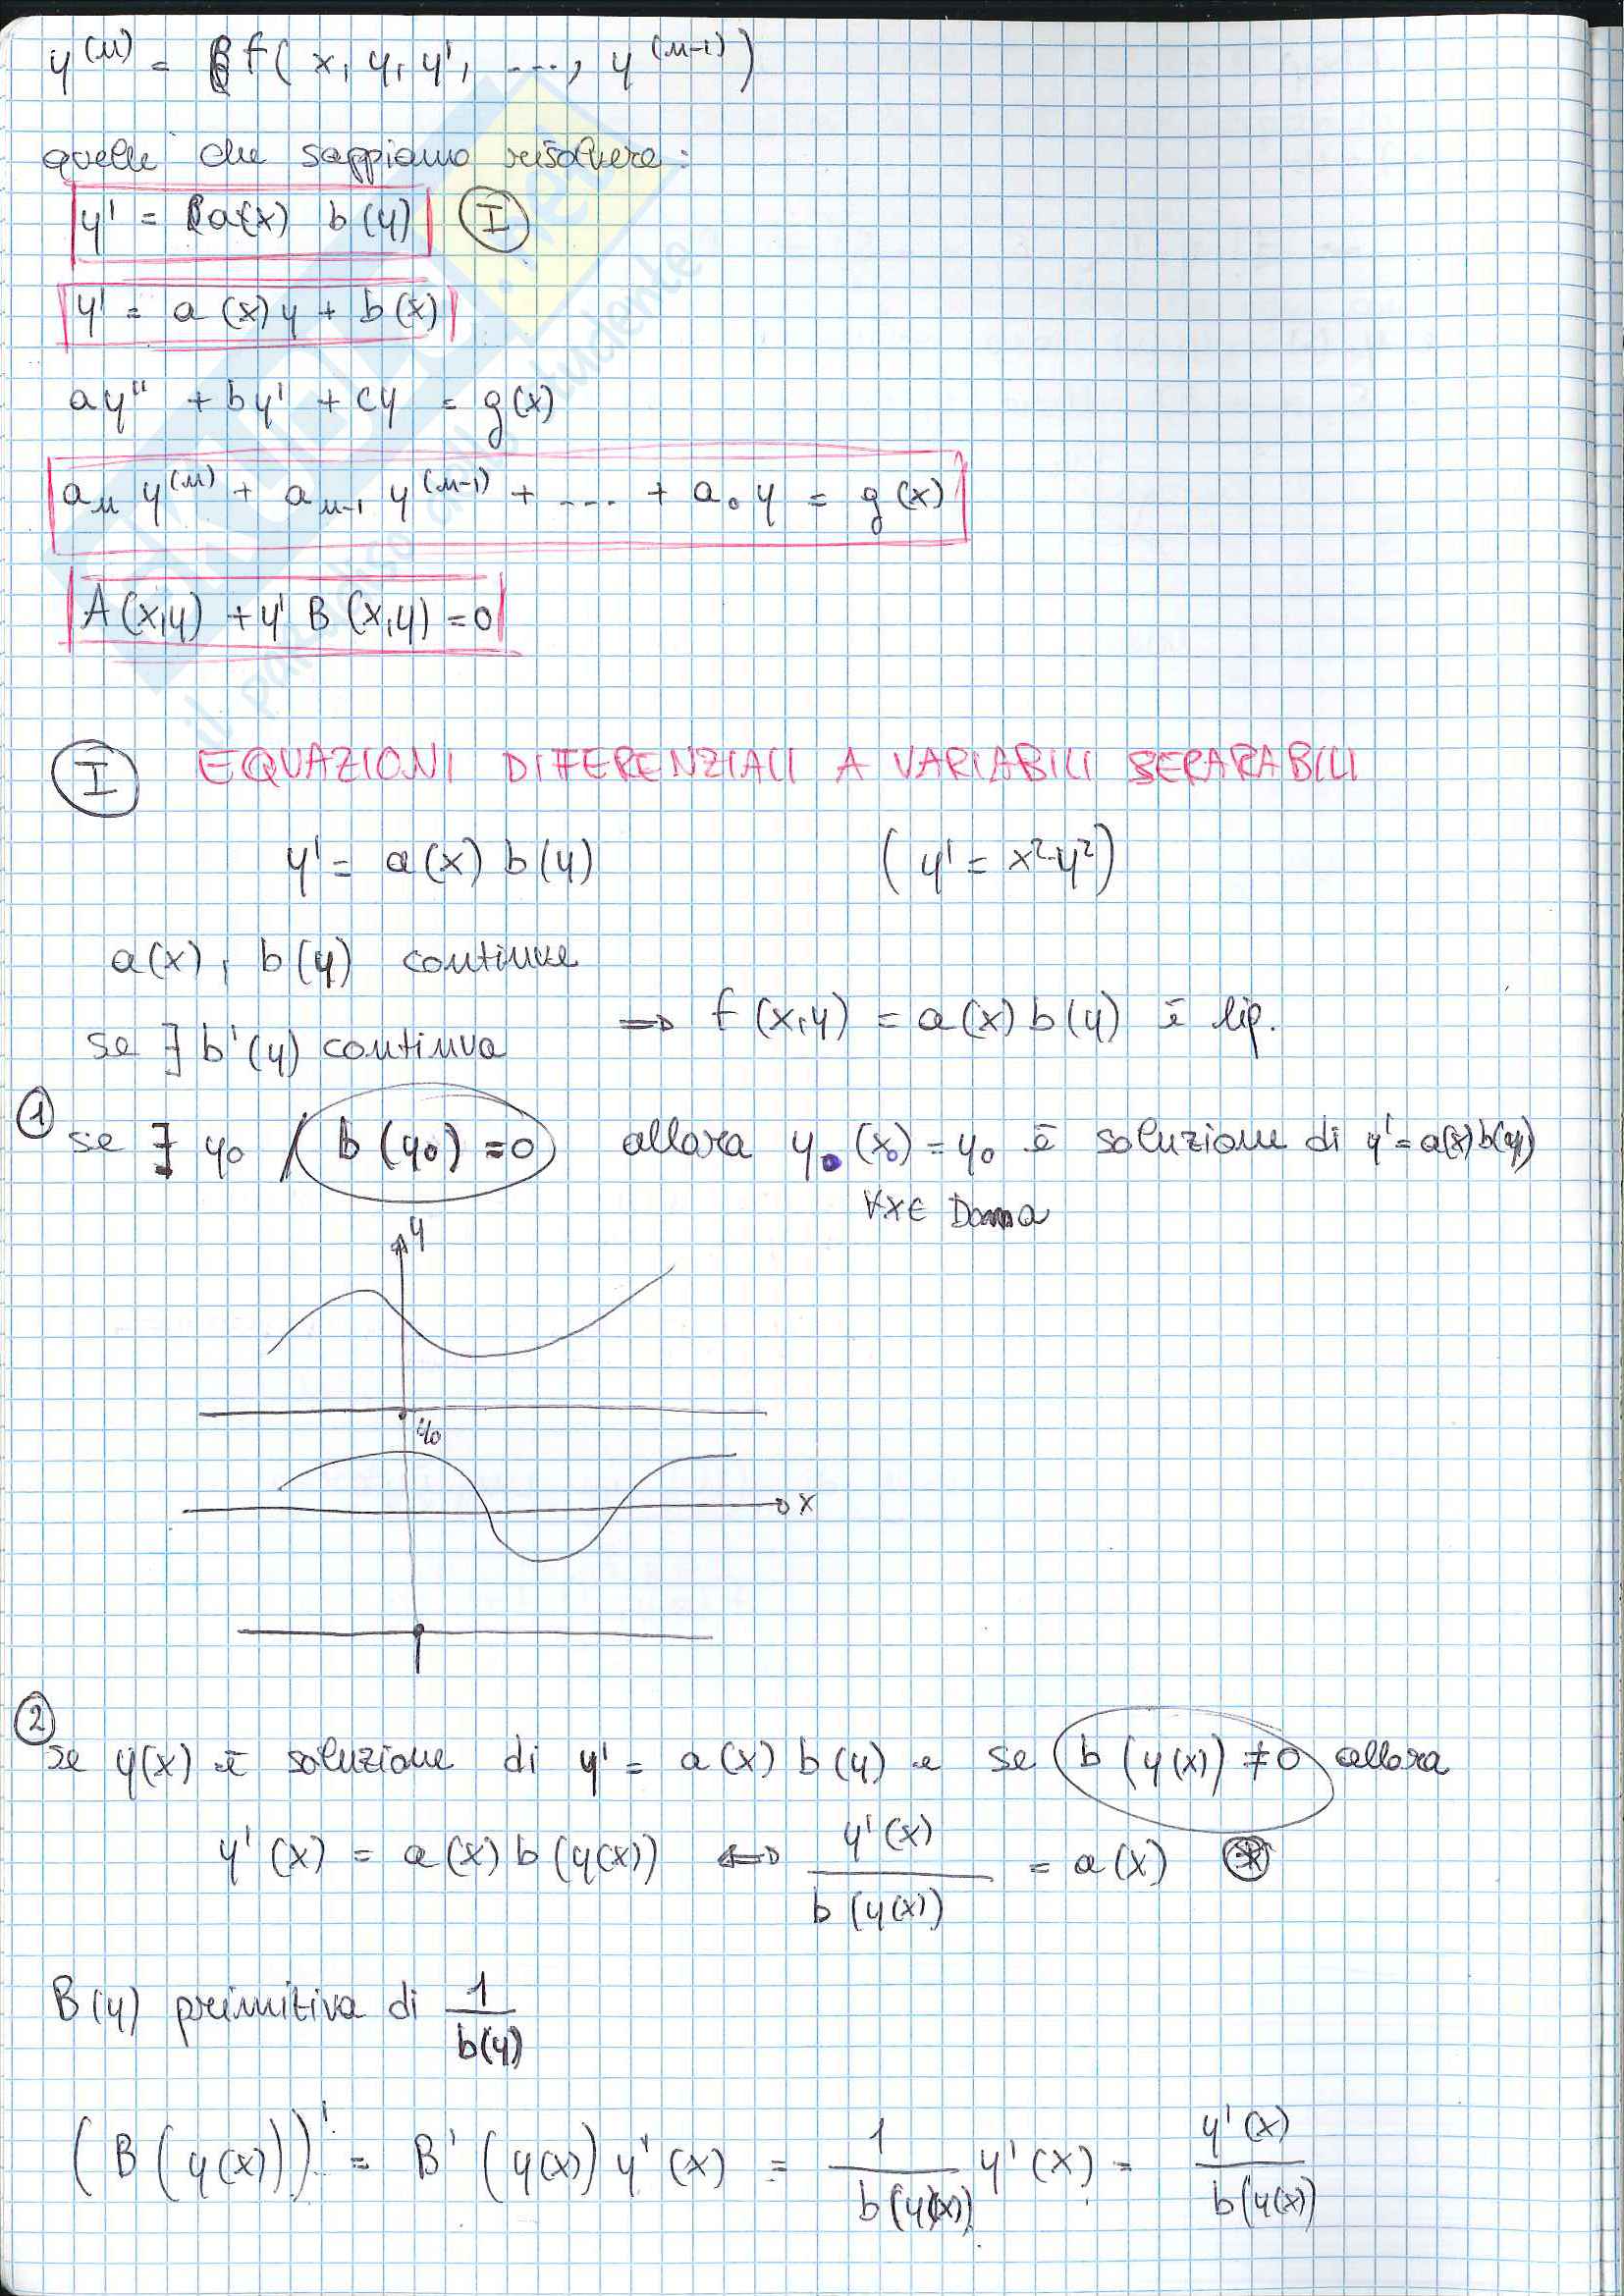 y⁽ⁿ⁾ = f(x, y, y', ...., y⁽ⁿ⁻¹⁾)
quelle che sappiamo risolvere:
y' = a(x) b(y) I
y' = a(x)y + b(x)
ay'' + by' + cy = g(x)
aₙ y⁽ⁿ⁾ + aₙ₋₁ y⁽ⁿ⁻¹⁾ + .... + a₀ y = g(x)
A(x,y) + y' B(x,y) = 0
il paradiso dello studente
I EQUAZIONI DIFFERENZIALI A VARIABILI SEPARABILI
y' = a(x) b(y) (y' = x²-y²)
a(x), b(y) continue
⇒ f(x,y) = a(x) b(y) è lip.
se ∃ b'(y) continua
1
se ∃ y₀ / b(y₀) = 0 allora y (x) = y₀ è soluzione di y' = a(x) b(y)
∀x∈ Dom a
y
y₀
x
2
se y(x) è soluzione di y' = a(x) b(y) e se b(y(x)) ≠ 0 allora
y'(x) = a(x) b(y(x)) ⇔ y'(x) / b(y(x)) = a(x) ⊛
B(y) primitiva di 1 / b(y)
(B(y(x)))' = B'(y(x)) y'(x) = 1 / b(y(x)) y'(x) = y'(x) / b(y(x))